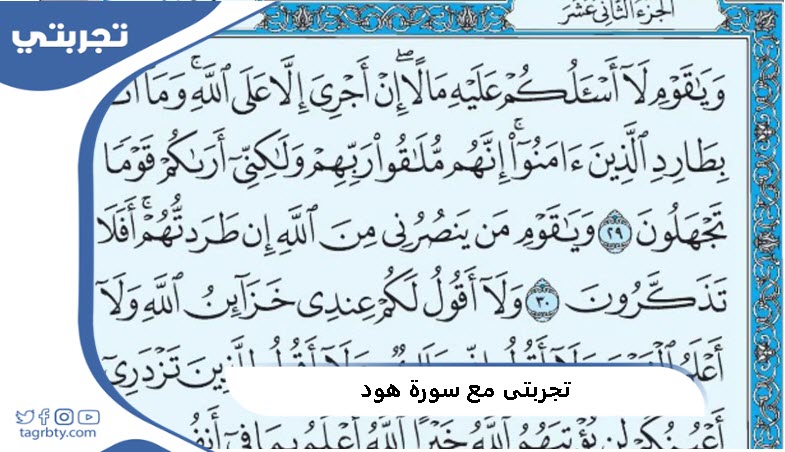 تجربتي
الجزء الثاني عشر
وَيَٰقَوْمِ لَآ أَسْـَٔلُكُمْ عَلَيْهِ مَالًا ۖ إِنْ أَجْرِىَ إِلَّا عَلَى ٱللَّهِ ۚ وَمَآ
بِطَارِدِ ٱلَّذِينَ ءَامَنُوٓا۟ ۚ إِنَّهُم مُّلَٰقُوا۟ رَبِّهِمْ وَلَٰكِنِّىٓ أَرَىٰكُمْ قَوْمًا
تَجْهَلُونَ ٢٩ وَيَٰقَوْمِ مَن يَنصُرُنِى مِنَ ٱللَّهِ إِن طَرَدتُّهُمْ ۚ أَفَلَا
تَذَكَّرُونَ ٣٠ وَلَآ أَقُولُ لَكُمْ عِندِى خَزَآئِنُ ٱللَّهِ وَلَآ
أَعْلَمُ ٱلْغَيْبَ وَلَآ أَقُولُ إِنِّى وَلَآ أَقُولُ لِلَّذِينَ تَزْدَرِىٓ
تجربتى مع سورة هود
أَعْيُنُكُمْ لَن يُؤْتِيَهُمُ ٱللَّهُ خَيْرًا ۖ ٱللَّهُ أَعْلَمُ بِمَا فِىٓ
tagrbty.com